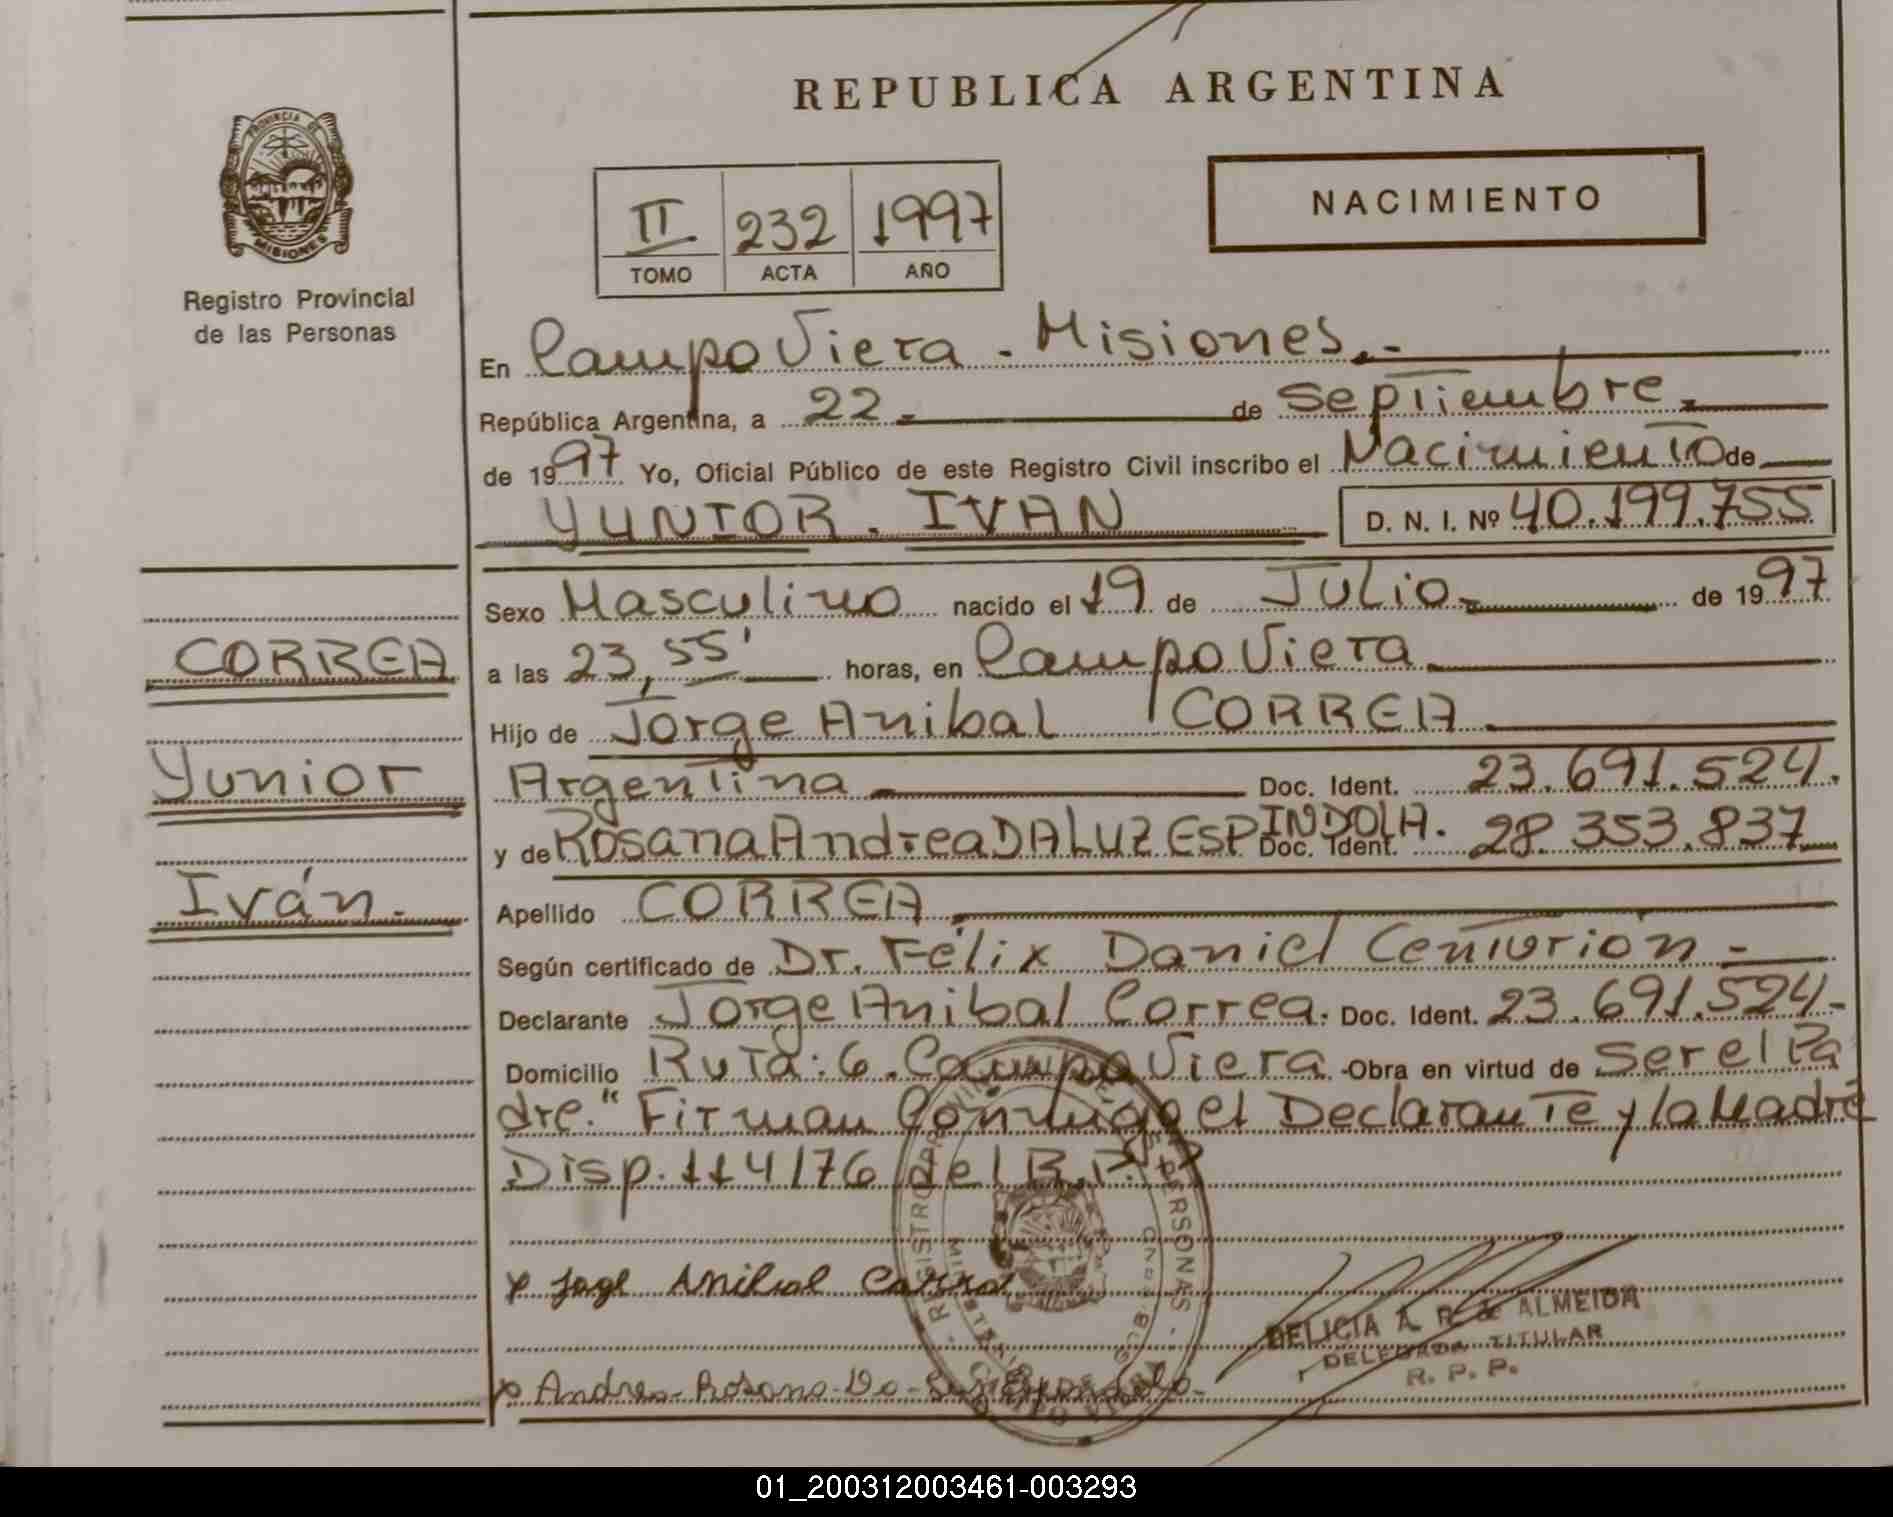 REPUBLICA ARGENTINA
PROVINCIA DE
MISIONES
Registro Provincial
de las Personas
II 232 1997
TOMO ACTA AÑO
NACIMIENTO
En Campo Viera - Misiones.-
República Argentina, a 22.- de Septiembre.-
de 1997 Yo, Oficial Público de este Registro Civil inscribo el Nacimiento de
YUNIOR. IVAN D. N. I. Nº 40.199.755
Sexo Masculino nacido el 19 de Julio.- de 1997
CORREA
a las 23,55' horas, en Campo Viera
Hijo de Jorge Anibal CORREA
Yunior
Argentina Doc. Ident. 23.691.524.
y de Rosana Andrea DA LUZ ESPINDOLA. Doc. Ident. 28.353.837
Iván.-
Apellido CORREA
Según certificado de Dr. Félix Daniel Centurión.-
Declarante Jorge Anibal Correa. Doc. Ident. 23.691.524-
Domicilio Ruta: 6. Campo Viera - Obra en virtud de ser el Pa
dre." Firman Conmigo el Declarante y la Madre
Disp. 114/76 del R.P.P
REGISTRO PERSONAS
x Jorge Anibal Correa
DELICIA A. R. de ALMEIDA
DELEGADA TITULAR
R. P. P.
Andrea-Rosana-Da-
01_200312003461-003293